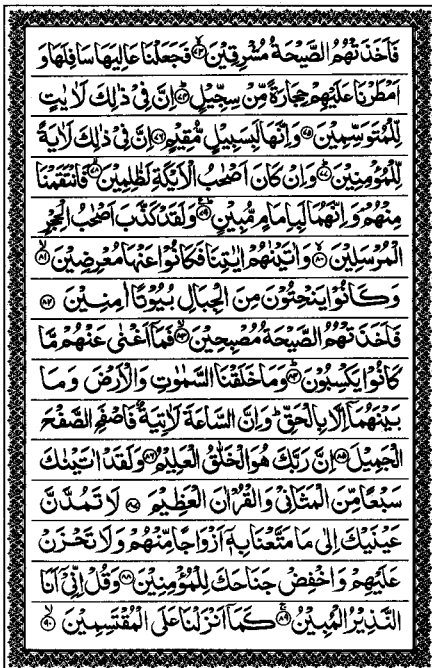 فَاَخَذَتْهُمُ الصَّيْحَةُ مُشْرِقِيْنَ ﴿۷۳﴾ فَجَعَلْنَا عَالِيَهَا سَافِلَهَا وَ
اَمْطَرْنَا عَلَيْهِمْ حِجَارَةً مِّنْ سِجِّيْلٍ ﴿۷۴﴾ اِنَّ فِيْ ذٰلِكَ لَاٰيٰتٍ
لِّلْمُتَوَسِّمِيْنَ ﴿۷۵﴾ وَاِنَّهَا لَبِسَبِيْلٍ مُّقِيْمٍ ﴿۷۶﴾ اِنَّ فِيْ ذٰلِكَ لَاٰيَةً
لِّلْمُؤْمِنِيْنَ ﴿۷۷﴾ وَاِنْ كَانَ اَصْحٰبُ الْاَيْكَةِ لَظٰلِمِيْنَ ﴿۷۸﴾ فَانْتَقَمْنَا
مِنْهُمْ وَاِنَّهُمَا لَبِاِمَامٍ مُّبِيْنٍ ﴿۷۹﴾ وَلَقَدْ كَذَّبَ اَصْحٰبُ الْحِجْرِ
الْمُرْسَلِيْنَ ﴿۸۰﴾ وَاٰتَيْنٰهُمْ اٰيٰتِنَا فَكَانُوْا عَنْهَا مُعْرِضِيْنَ ﴿۸۱﴾
وَكَانُوْا يَنْحِتُوْنَ مِنَ الْجِبَالِ بُيُوْتًا اٰمِنِيْنَ ﴿۸۲﴾
فَاَخَذَتْهُمُ الصَّيْحَةُ مُصْبِحِيْنَ ﴿۸۳﴾ فَمَاۤ اَغْنٰى عَنْهُمْ مَّا
كَانُوْا يَكْسِبُوْنَ ﴿۸۴﴾ وَمَا خَلَقْنَا السَّمٰوٰتِ وَالْاَرْضَ وَمَا
بَيْنَهُمَاۤ اِلَّا بِالْحَقِّ ؕ وَاِنَّ السَّاعَةَ لَاٰتِيَةٌ فَاصْفَحِ الصَّفْحَ
الْجَمِيْلَ ﴿۸۵﴾ اِنَّ رَبَّكَ هُوَ الْخَلّٰقُ الْعَلِيْمُ ﴿۸۶﴾ وَلَقَدْ اٰتَيْنٰكَ
سَبْعًا مِّنَ الْمَثَانِيْ وَالْقُرْاٰنَ الْعَظِيْمَ ﴿۸۷﴾ لَا تَمُدَّنَّ
عَيْنَيْكَ اِلٰى مَا مَتَّعْنَا بِهٖۤ اَزْوَاجًا مِّنْهُمْ وَلَا تَحْزَنْ
عَلَيْهِمْ وَاخْفِضْ جَنَاحَكَ لِلْمُؤْمِنِيْنَ ﴿۸۸﴾ وَقُلْ اِنِّيْۤ اَنَا
النَّذِيْرُ الْمُبِيْنُ ﴿۸۹﴾ كَمَاۤ اَنْزَلْنَا عَلَى الْمُقْتَسِمِيْنَ ﴿۹۰﴾